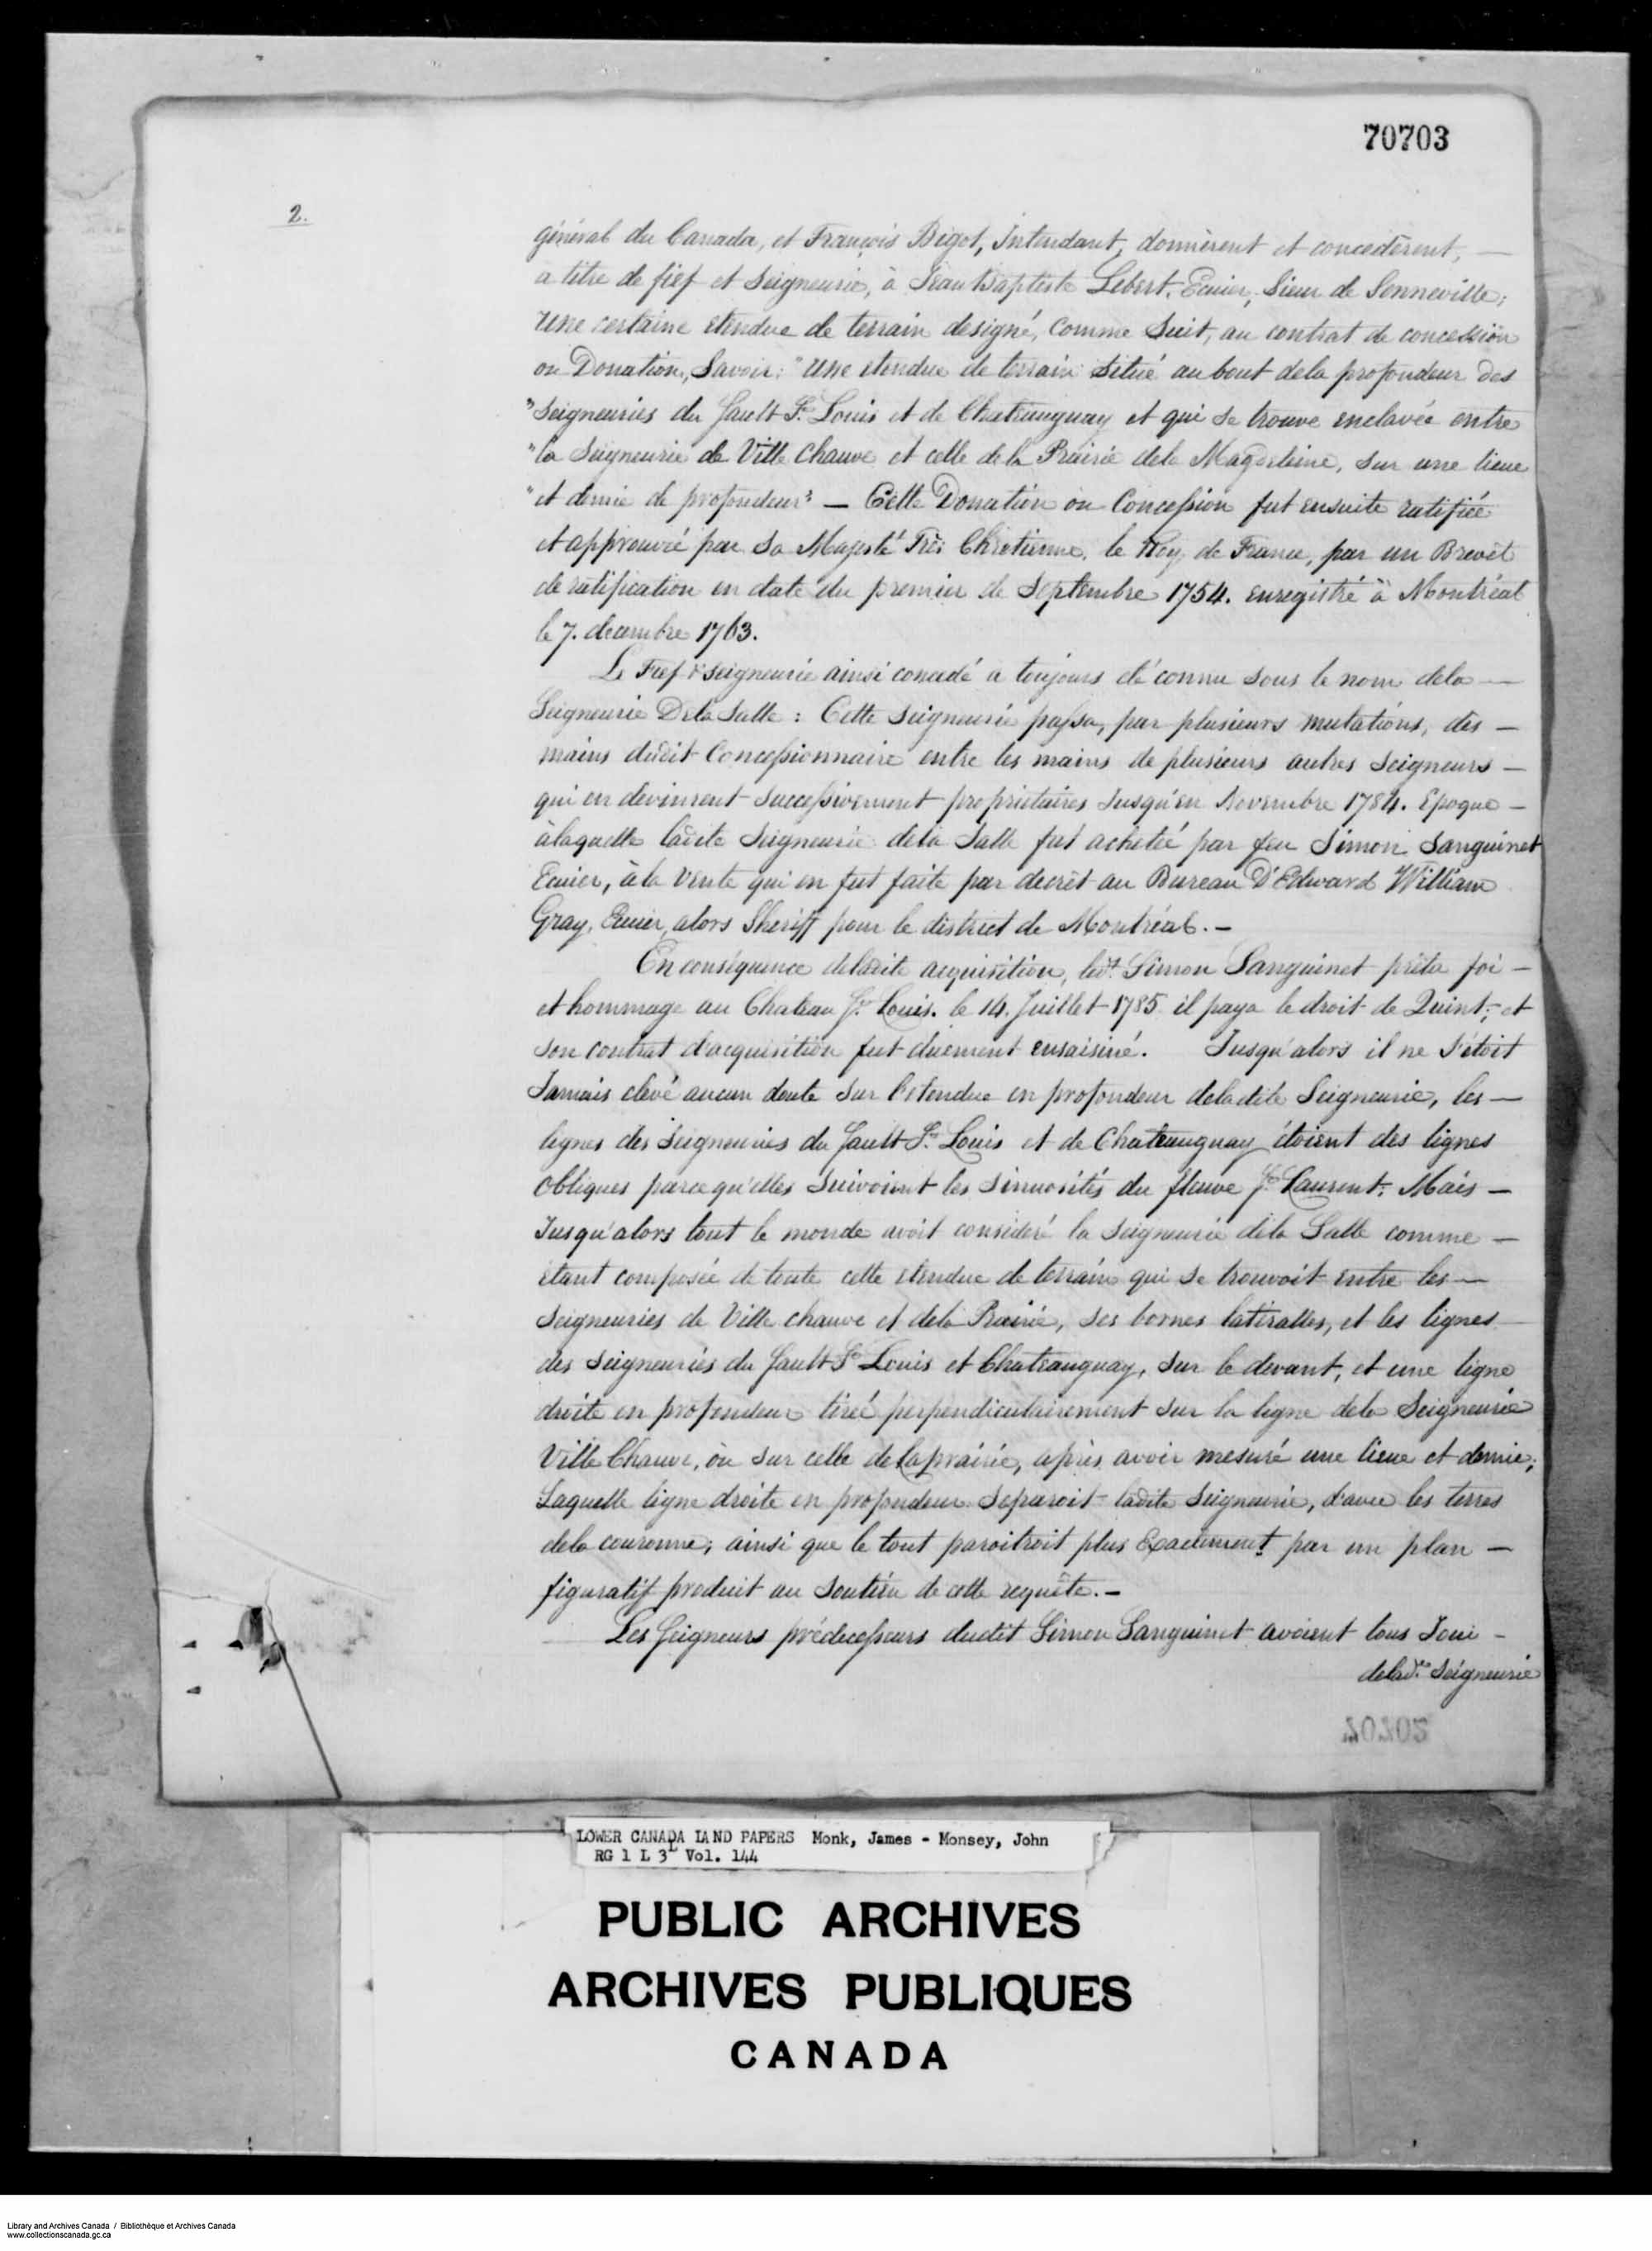 70703
2.
général du Canada, et François Bigot, Intendant, donnèrent et concedèrent, —
a titre de fief et Seigneurie, à Jean Baptiste Lebert, Ecuier, Sieur de Senneville;
une certaine etendue de terrain designé, comme Suit, au contrat de concession
ou Donation, Savoir: "Une etendue de terrain Situé au bout dela profondeur des
"Seigneuries du Sault St. Louis et de Chateauguay et qui se trouve enclavée entre
"la Seigneurie de Ville Chauve et celle dela Prairie dela Magdeleine, sur une lieue
"et demie de profondeur" — Cette Donation ou Concession fut ensuite ratifiée
et approuvée par Sa Majesté Très Chretienne, le Roy de France, par un Brevèt
de ratification en date du premier de Septembre 1754. enregistré à Montréal
le 7. decembre 1763.
Le Fief & Seigneurie ainsi concedé a toujours été connu sous le nom dela —
Seigneurie DelaSalle : Cette Seigneurie passa, par plusieurs mutations, des —
mains dudit Concessionnaire entre les mains de plusieurs autres Seigneurs —
qui en devinrent successivement proprietaires Jusqu'en Novembre 1784. Epoque —
àlaquelle ladite Seigneurie dela Salle fut achetée par feu Simon Sanguinet
Ecuier, àla Vente qui en fut faite par decrèt au Bureau D'Edward William
Gray, Ecuier, alors Sheriff pour le district de Montréal. —
En conséquence deladite acquisition, ledt. Simon Sanguinet prêta foi —
et hommage au Chateau St. Louis. le 14. Juillet 1785 il paya le droit de Quint; et
son contrat d'acquisition fut duement ensaisiné. Jusqu'alors il ne s'étoit
Jamais elevé aucun doute sur l'etendue en profondeur deladite Seigneurie, les —
lignes des Seigneuries du Sault St. Louis et de Chateauguay étoient des lignes
Obliques parcequ'elles Suivoient les Sinuosités du fleuve St. Laurent: Mais —
Jusqu'alors tout le monde avoit consideré la Seigneurie dela Salle comme —
étant composée de toute cette etendue de terrain qui se trouvoit entre les —
Seigneuries de Ville chauve et dela Prairie, ses bornes latéralles, et les lignes
des Seigneuries du Sault St. Louis et Chateauguay, sur le devant, et une ligne
droite en profondeur tirée perpendiculairement sur la ligne dela Seigneurie
Ville Chauve, ou sur celle de Laprairie, après avoir mesuré une lieue et demie;
Laquelle ligne droite en profondeur separoit ladite Seigneurie, d'avec les terres
dela couronne; ainsi que le tout paroitroit plus Exactement par un plan —
figuratif produit au soutien de cette requête. —
Les Seigneurs prédecesseurs dudit Simon Sanguinet avoient tous Joui —
delade. Seigneurie
LOWER CANADA LAND PAPERS Monk, James - Monsey, John
RG 1 L 3L Vol. 144
PUBLIC ARCHIVES
ARCHIVES PUBLIQUES
CANADA
Library and Archives Canada / Bibliothèque et Archives Canada
www.collectionscanada.gc.ca